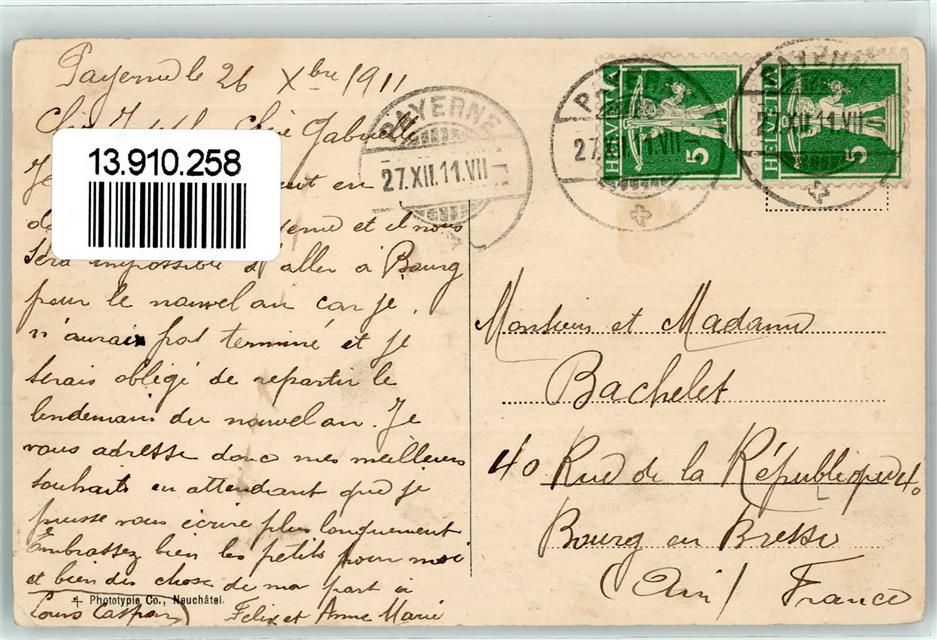 Payerne le 26 Xbre 1911
Gabrielle
Je
en
de et il nous
sera impossible d'aller à Bourg
pour le nouvel an car je
n'aurais pas terminé et je
serais obligé de repartir le
lendemain du nouvel an. Je
vous adresse donc mes meilleurs
souhaits en attendant que je
puisse vous écrire plus longuement
Embrassez bien les petits pour moi
et bien des chose de ma part à
Louis Felix et Anne Marie
13.910.258
PAYERNE
27.XII.11.VII
PAYERNE
27.XII.11.VII
PAYERNE
27.XII.11.VII
HELVETIA 5
HELVETIA 5
Monsieur et Madame
Bachelet
40 Rue de la République 40
Bourg en Bresse
(Ain) France
Phototypie Co., Neuchâtel.